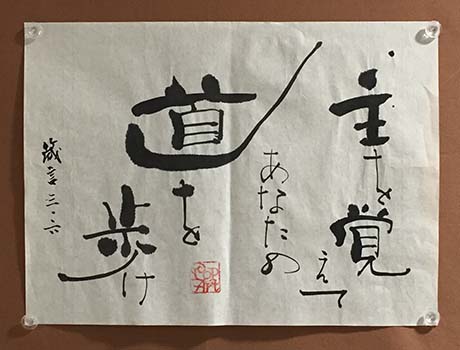 主を覚えて
あなたの
道を
歩け
箴言三・六